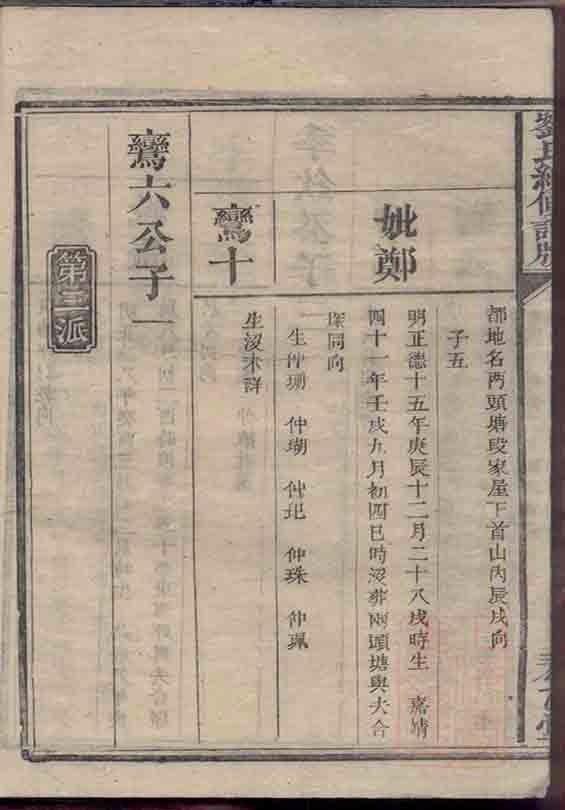 劉氏續修譜牒
都地名两頭塘段家屋下首山内辰戌向
子五
妣鄭
明正德十五年庚辰十二月二十八戌時生 嘉靖
四十一年壬戌九月初四巳時沒葬兩頭塘與夫合
塚同向
生仲瑚 仲瑚 仲玘 仲珠 仲珮
鸞十
生沒未詳
鸞六公子一
第三派